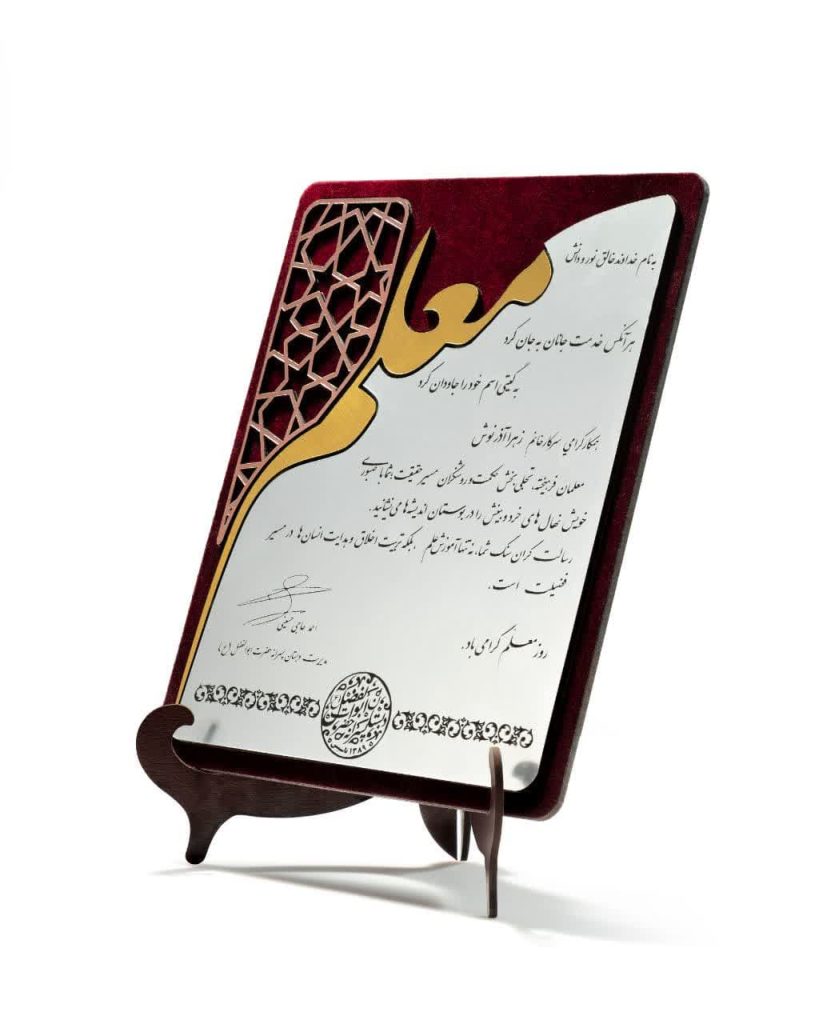 معلم
به نام خداوند خالق نور و دانش
هر آنکس خدمت جانان به جان کرد
به گیتی اسم خود را جاودان کرد
همکار گرامی سرکار خانم زهرا آذرنوش
معلمان فریخته، تجلی بخش حکمت و روشنگران مسیر حقیقت، شما با صبوری
خویش نهال های خرد و بینش را در بوستان اندیشه ها می نشانید.
رسالت گران سنگ شما، نه تنها آموزش علم، بلکه تربیت اخلاق و هدایت انسان ها در مسیر
فضیلت است.
روز معلم گرامی باد.
احمد حاجی حسینی
مدیریت دبستان پسرانه حضرت ابوالفضل (ع)
دبستان پسرانه حضرت ابوالفضل
تاسیس ۱۳۸۹